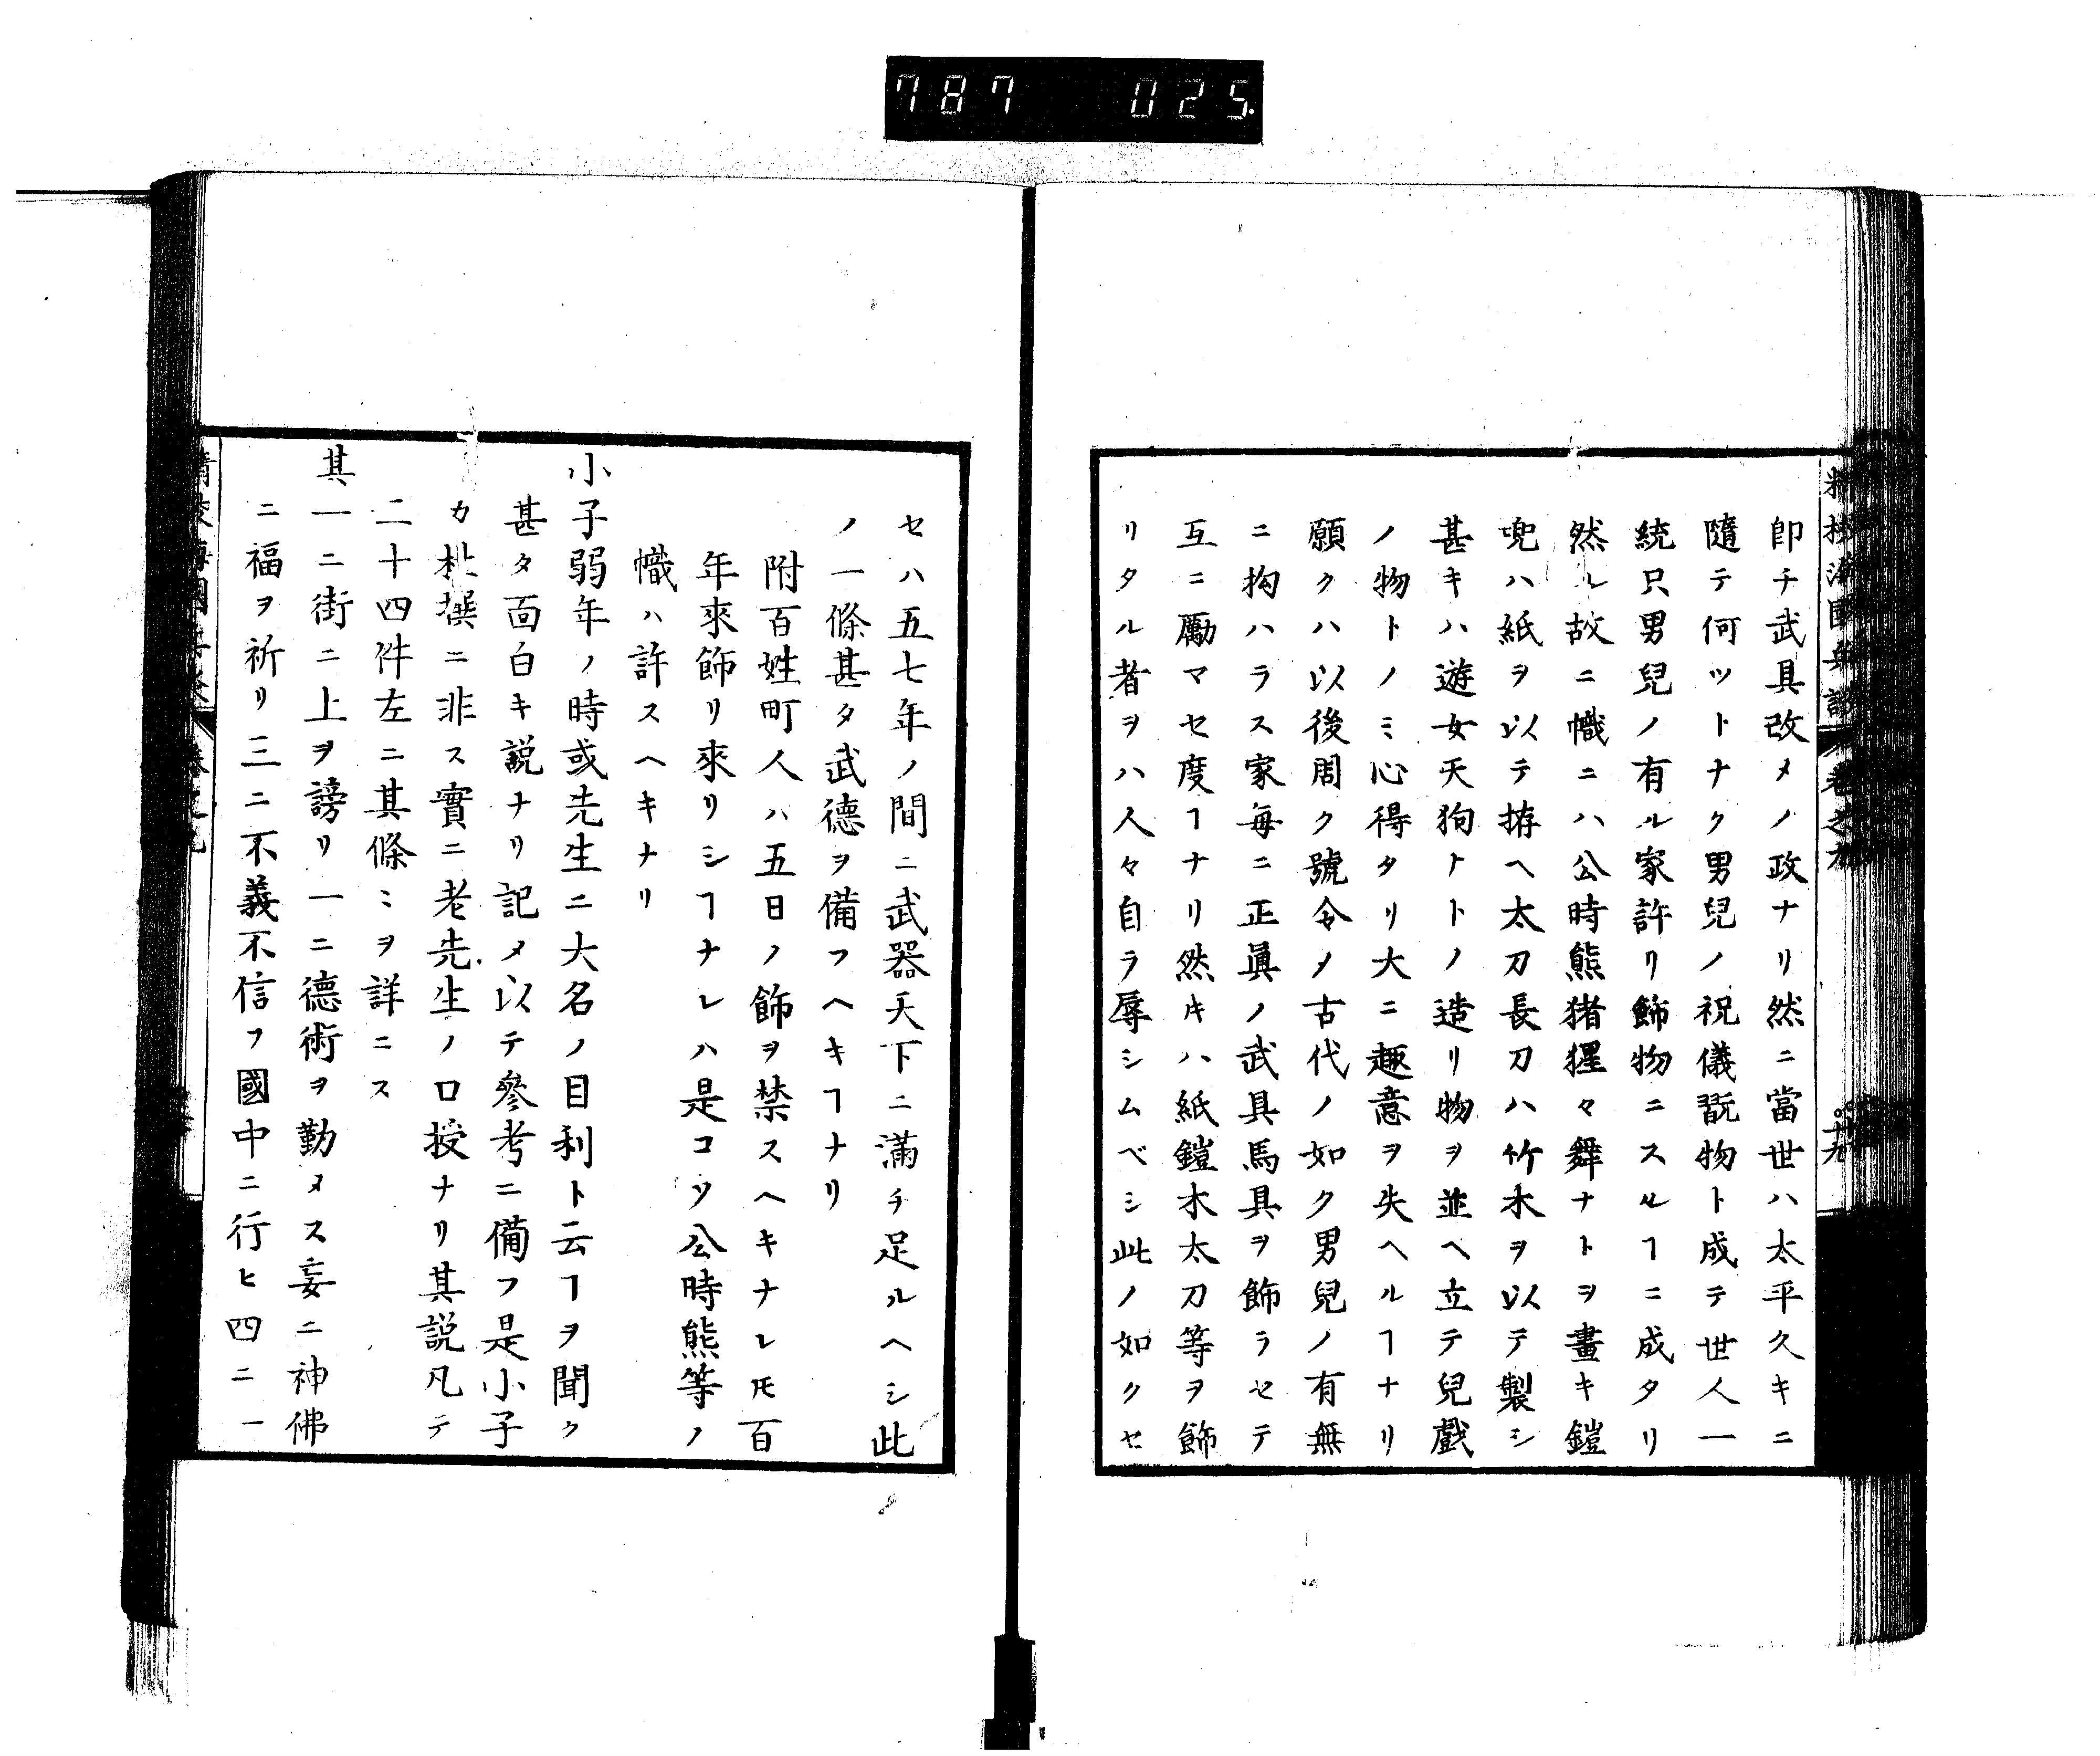 787 025.
精校海國兵談 卷之九
卽チ武具改メノ政ナリ然ニ當世ハ太平久キニ
隨テ何ットナク男兒ノ祝儀翫物ト成テ世人一
統只男兒ノ有ル家許リ飾物ニスルヿニ成タリ
然ル故ニ幟ニハ公時熊猪猩々舞ナトヲ畫キ鎧
兜ハ紙ヲ以テ拵ヘ太刀長刀ハ竹木ヲ以テ製シ
甚キハ遊女天狗ナトノ造リ物ヲ並ヘ立テ兒戲
ノ物トノミ心得タリ大ニ趣意ヲ失ヘルヿナリ
願クハ以後周ク號令メ古代ノ如ク男兒ノ有無
ニ拘ハラス家每ニ正眞ノ武具馬具ヲ飾ラセテ
互ニ勵マセ度ヿナリ然キハ紙鎧木太刀等ヲ飾
リタル者ヲハ人々自ラ辱シムベシ此ノ如クセ
セハ五七年ノ間ニ武器天下ニ滿チ足ルヘシ此
ノ一條甚タ武德ヲ備フヘキヿナリ
附百姓町人ハ五日ノ飾ヲ禁スヘキナレ𪜈百
年來飾リ來リシヿナレハ是コソ公時熊等ノ
幟ハ許スヘキナリ
小子弱年ノ時或先生ニ大名ノ目利ト云ヿヲ聞ク
甚タ面白キ説ナリ記メ以テ參考ニ備フ是小子
カ杜撰ニ非ス實ニ老先生ノ口授ナリ其説凡テ
二十四件左ニ其條ミヲ詳ニス
其一ニ街ニ上ヲ謗リ一ニ德術ヲ勤メス妄ニ神佛
ニ福ヲ祈リ三ニ不義不信フ國中ニ行ヒ四ニ一